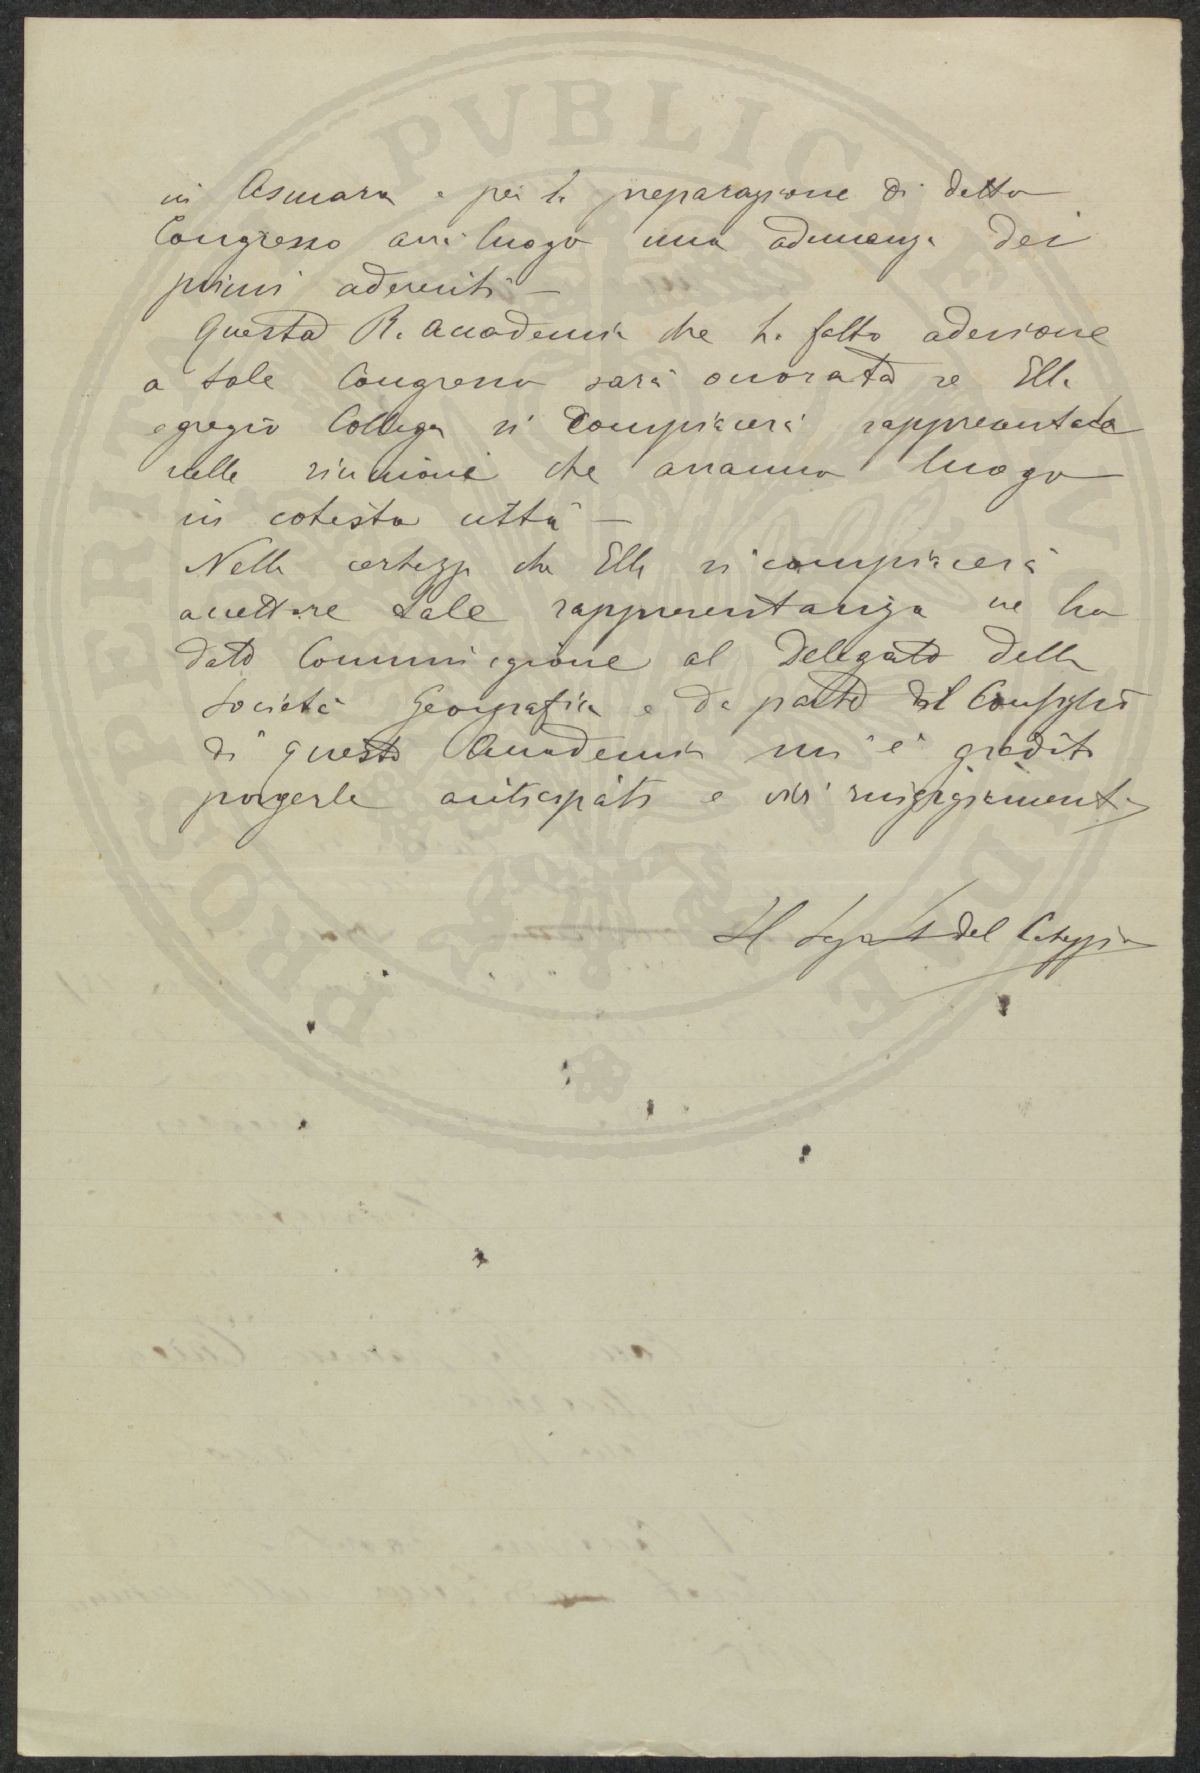 in Asmara e per la preparazione di detto
Congresso avrà luogo una adunanza dei
primi aderenti —
Questa R. Accademia che ha fatto adesione
a tale Congresso sarà onorata se Ella
egregio Collega si compiacerà rappresentarla
nelle riunioni che avranno luogo
in cotesta città —
Nella certezza che Ella si compiacerà
accettare tale rappresentanza ne ho
dato Comunicazione al Delegato della
Società Geografica e da parte del Consiglio
di questa Accademia mi è gradito
porgerle anticipati e vivi ringraziamenti
Il del
PROSPERITATI PVBLICAE AVGENDAE